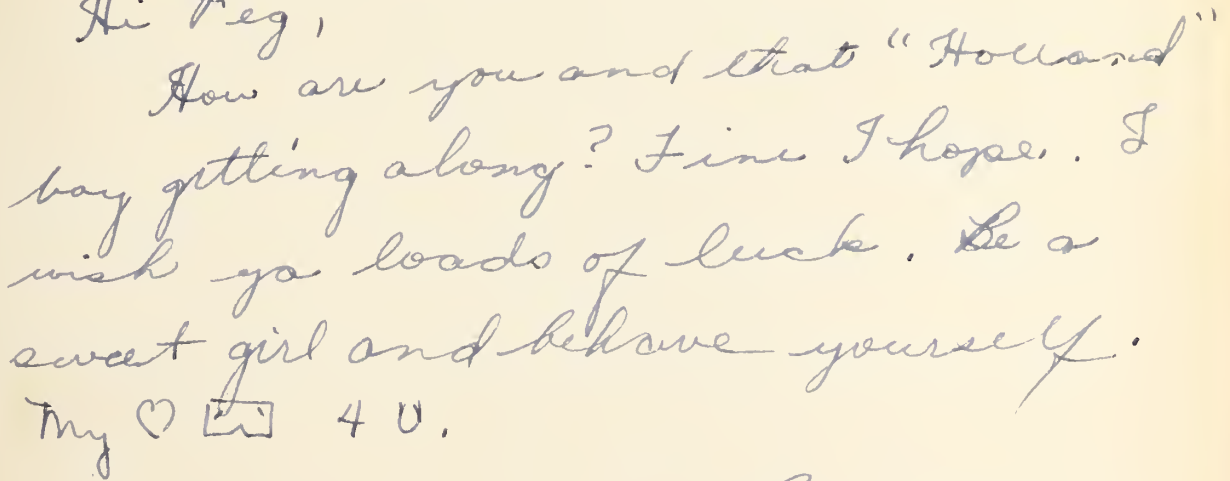 Hi Peg,
How are you and that "Holland"
boy getting along? Fine I hope. I
wish ya loads of luck. Be a
sweet girl and behave yourself.
My ♡ 4 U.